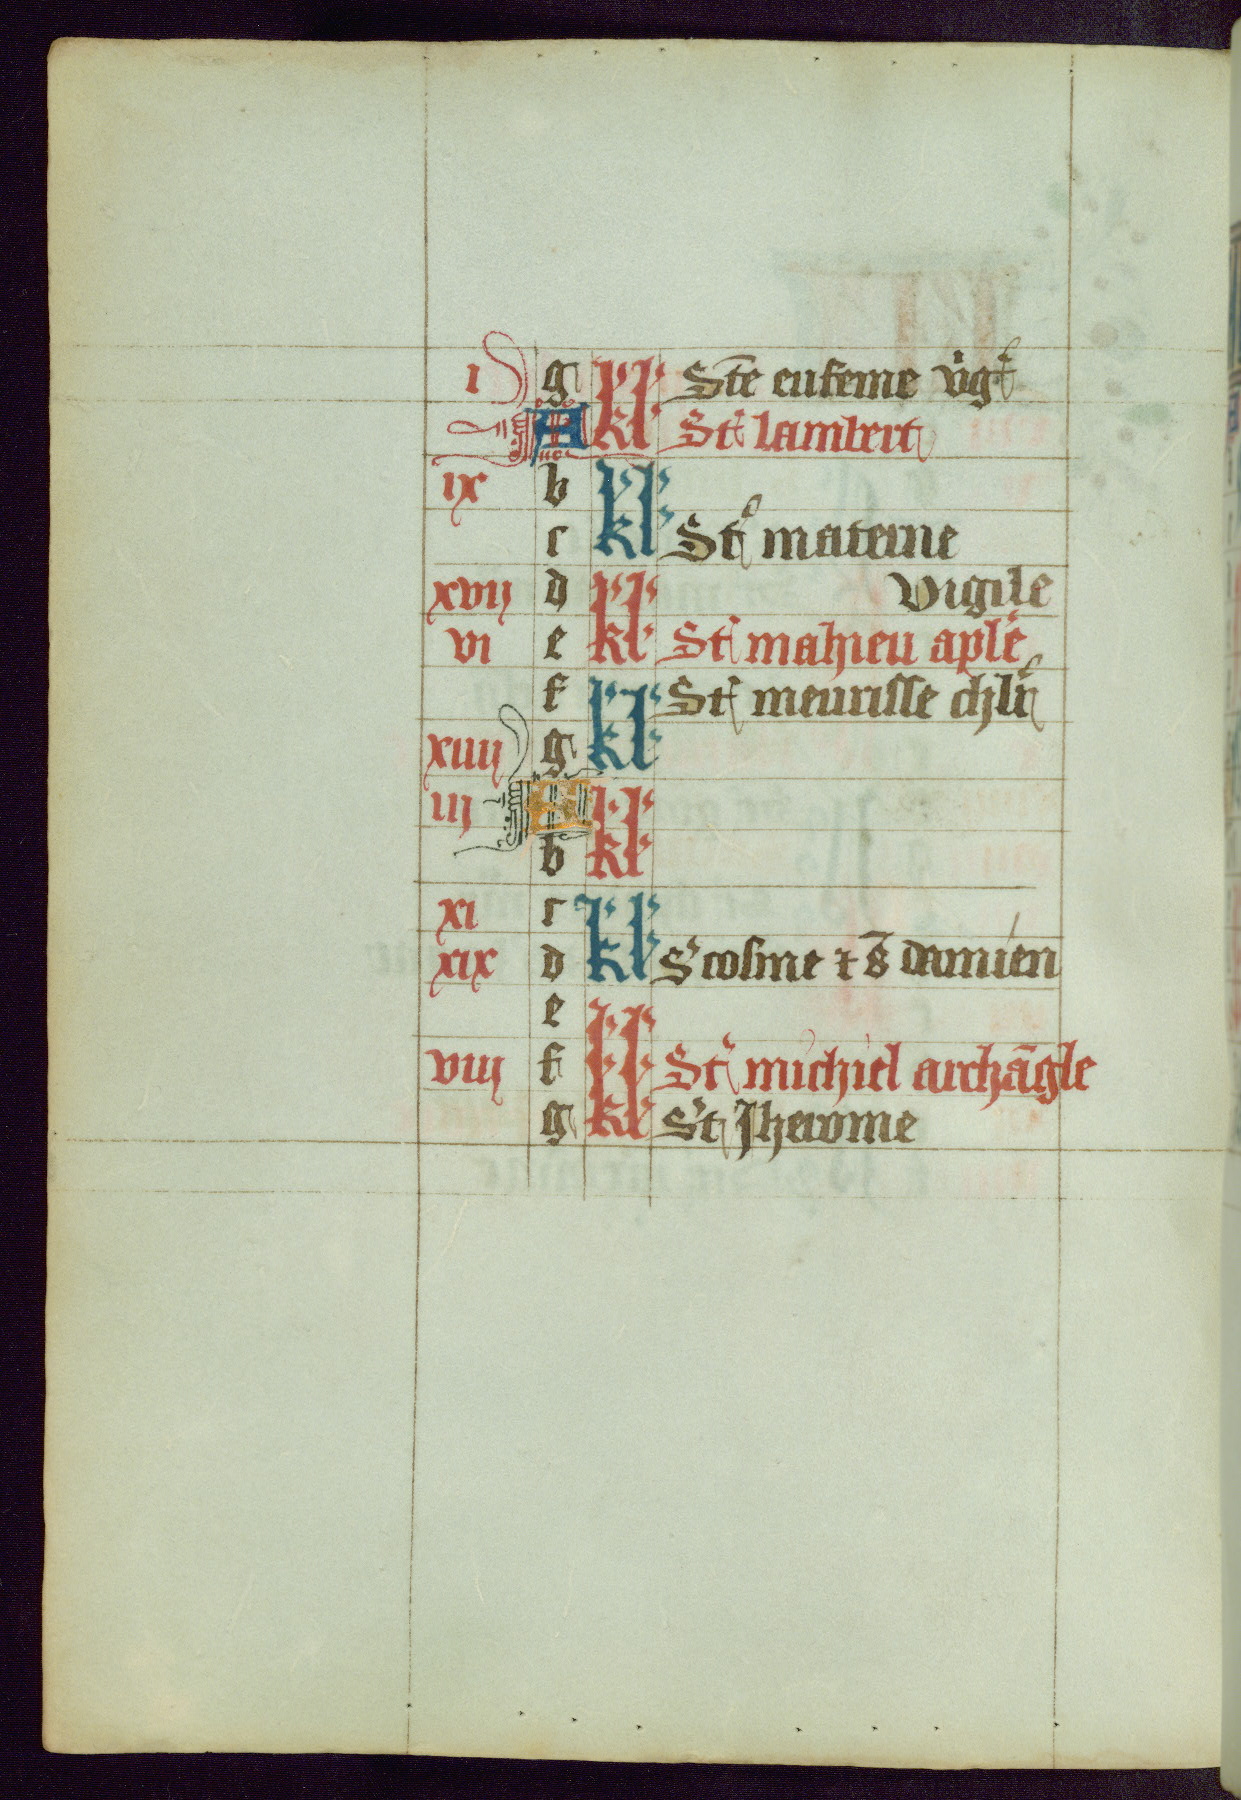 i g kl Ste eufeme virgᵉ
A kl St lambert
ix b kl
c kl St materne
xvij d kl vigile
vi e kl St mahieu aple
f kl St meurisse
xiiij g kl
iij A kl
b kl
xi c kl
xix d kl S cosme ⁊ S damien
e kl
viij f kl St michiel archāgle
g kl St Jherome